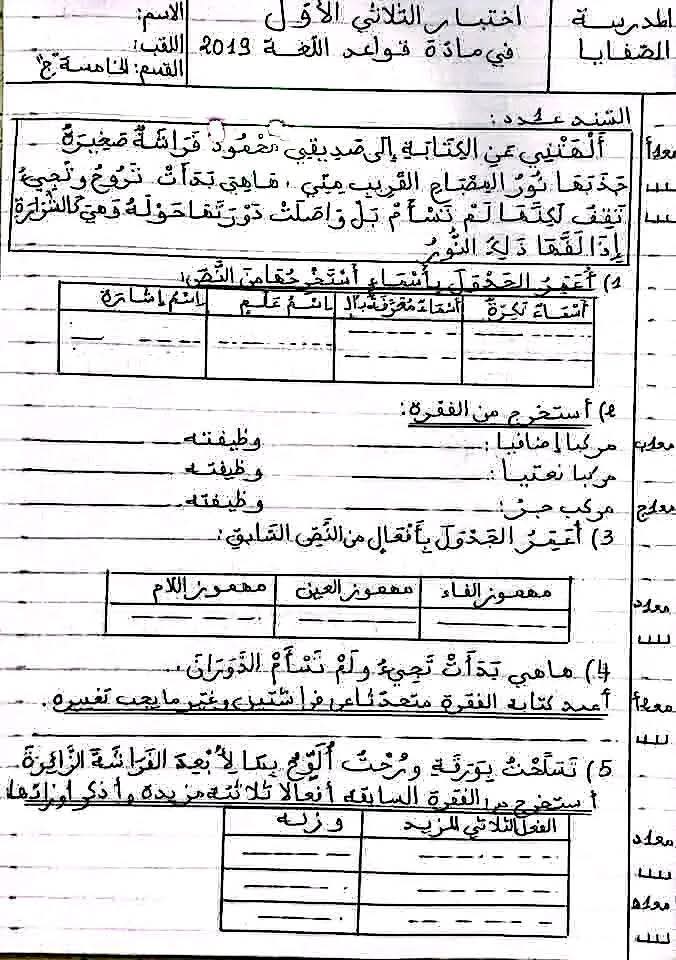 المدرسة
الصفايا
اختبار الثلاثي الأوّل
في مادّة قواعد اللّغة 2019
الاسم:
اللقب:
القسم: الخامسة "ج"
السّند عدد1:
أَلْهَتْنِي عَنِ الكِتَابَةِ إلى صَدِيقِي مَحْمُود فَرَاشَةٌ صَغِيرَةٌ
جَذَبَهَا نُورُ المِصْبَاحِ القَرِيبِ مِنِّي. هَاهِيَ بَدَأَتْ تَرُوحُ وتَجِيءُ
تَقِفُ لَكِنَّهَا لَمْ تَسْأَمْ بَلْ وَاصَلَتْ دَوَرَانَهَا حَوْلَهُ وَهِيَ كَالشَّرَارَةِ
إِذَا لَفَّهَا ذَلِكَ النُّورُ
مع1أ
1) أُعَمِّرُ الجَدْوَلَ بِأَسْمَاءٍ أَسْتَخْرِجُهَا مِنَ النَّصِّ:
أَسْمَاءٌ نَكِرَةٌ
أَسْمَاءٌ مُعَرَّفَةٌ بِالـ
اِسْمُ عَلَمٍ
اِسْمُ إِشَارَةٍ
2) أستخرج من الفقرة:
مركبا إضافيا: وظيفته مع1ب
مركبا نعتيا: وظيفته
مركب جرّ: وظيفته مع1ج
3) أُعَمِّرُ الجَدْوَلَ بِأَفْعَالٍ مِنَ النَّصِّ السَّابِقِ:
مهموز الفاء
مهموز العين
مهموز اللام
مع1د
4) هاهي بَدَأَتْ تَجِيءُ ولَمْ تَسْأَمْ الدَّوَرَانَ.
أعيد كتابة الفقرة متحدّثا عن فراشتين وغيّر ما يجب تغييره. مع2أ
5) تَسَلَّحْتُ بِوَرَقَةٍ ورُحْتُ أُلَوِّحُ بِهَا لِأُبْعِدَ الفَرَاشَةَ الزَّائِرَةَ
أستخرج من الفقرة السابقة أفعالا ثلاثية مزيدة وأذكر أوزانها
الفعل الثلاثي المزيد
وزنه
مع2د
مع2ه